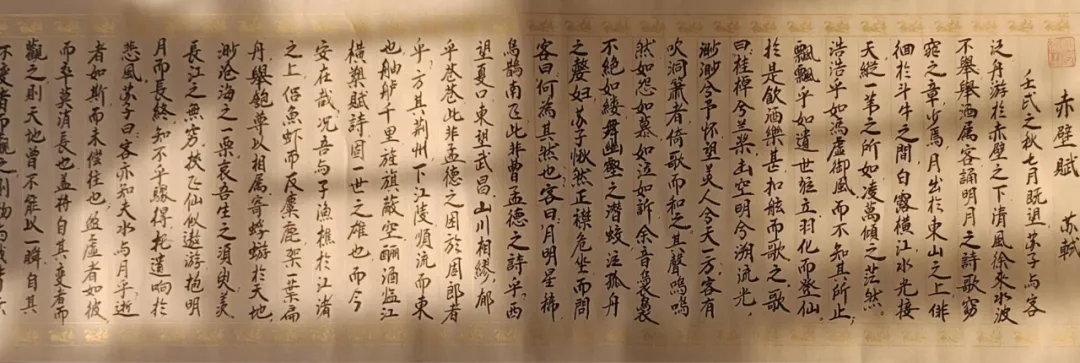 赤壁賦 苏軾
壬戌之秋七月既望苏子与客
泛舟游於赤壁之下清風徐来水波
不舉舉酒属客誦明月之詩歌窈
窕之章少焉月出於東山之上徘
徊於斗牛之間白露横江水光接
天縱一苇之所如凌萬傾之茫然
浩浩乎如馮虛御風而不知其所止
飄飄乎如遺世独立羽化而登仙
於是飲酒樂甚扣舷而歌之歌
曰桂棹兮兰桨击空明兮溯流光
渺渺兮予怀望美人兮天一方客有
吹洞簫者倚歌而和之其聲嗚嗚
然如怨如慕如泣如訴余音裊裊
不絕如縷舞幽壑之潛蛟泣孤舟
之嫠妇苏子愀然正襟危坐而問
客曰何為其然也客曰月明星稀
烏鵲南飞此非曹孟德之詩乎西
望夏口東望武昌山川相繆郁
乎苍苍此非孟德之困於周郎者
乎方其荆州下江陵順流而東
也舳舻千里旌旗蔽空酾酒临江
横槊賦詩固一世之雄也而今
安在哉况吾与子渔樵於江渚
之上侣魚虾而友麋鹿架一葉扁
舟舉匏尊以相属寄蜉蝣於天地
渺沧海之一粟哀吾生之須臾羡
長江之無穷挟飞仙以遨游抱明
月而長終知不乎驟得托遺响於
悲風苏子曰客亦知夫水与月乎逝
者如斯而未償往也盈虚者如彼
而卒莫消長也盖将自其变者而
觀之則天地曾不能以一瞬自其
不变者而觀之則物